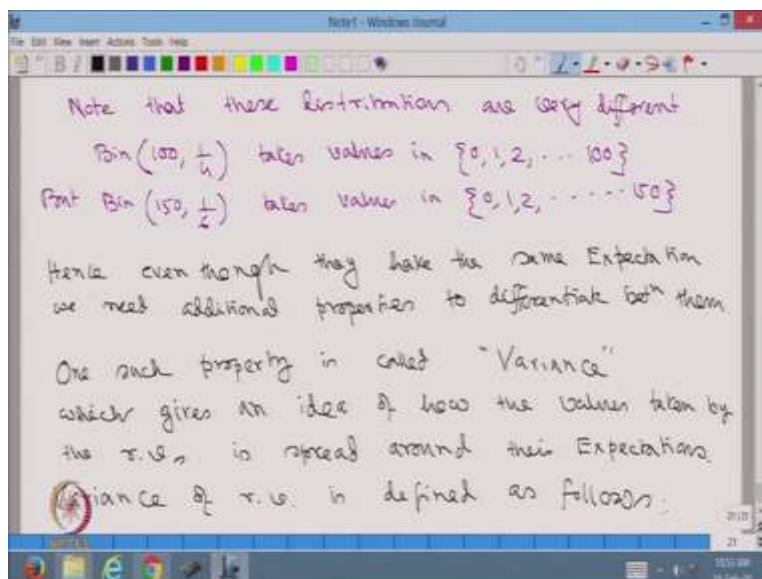 Note1 - Windows Journal
File Edit View Insert Actions Tools Help
Note that these distributions are very different
Bin(100, 1/4) takes values in {0, 1, 2, ... 100}
But Bin(150, 1/6) takes values in {0, 1, 2, ...... 150}
Hence even though they have the same Expectation
we need additional properties to differentiate betn them.
One such property is called "Variance"
which gives an idea of how the values taken by
the r.v.s is spread around their Expectations.
Variance of r.v. is defined as follows:
NPTEL